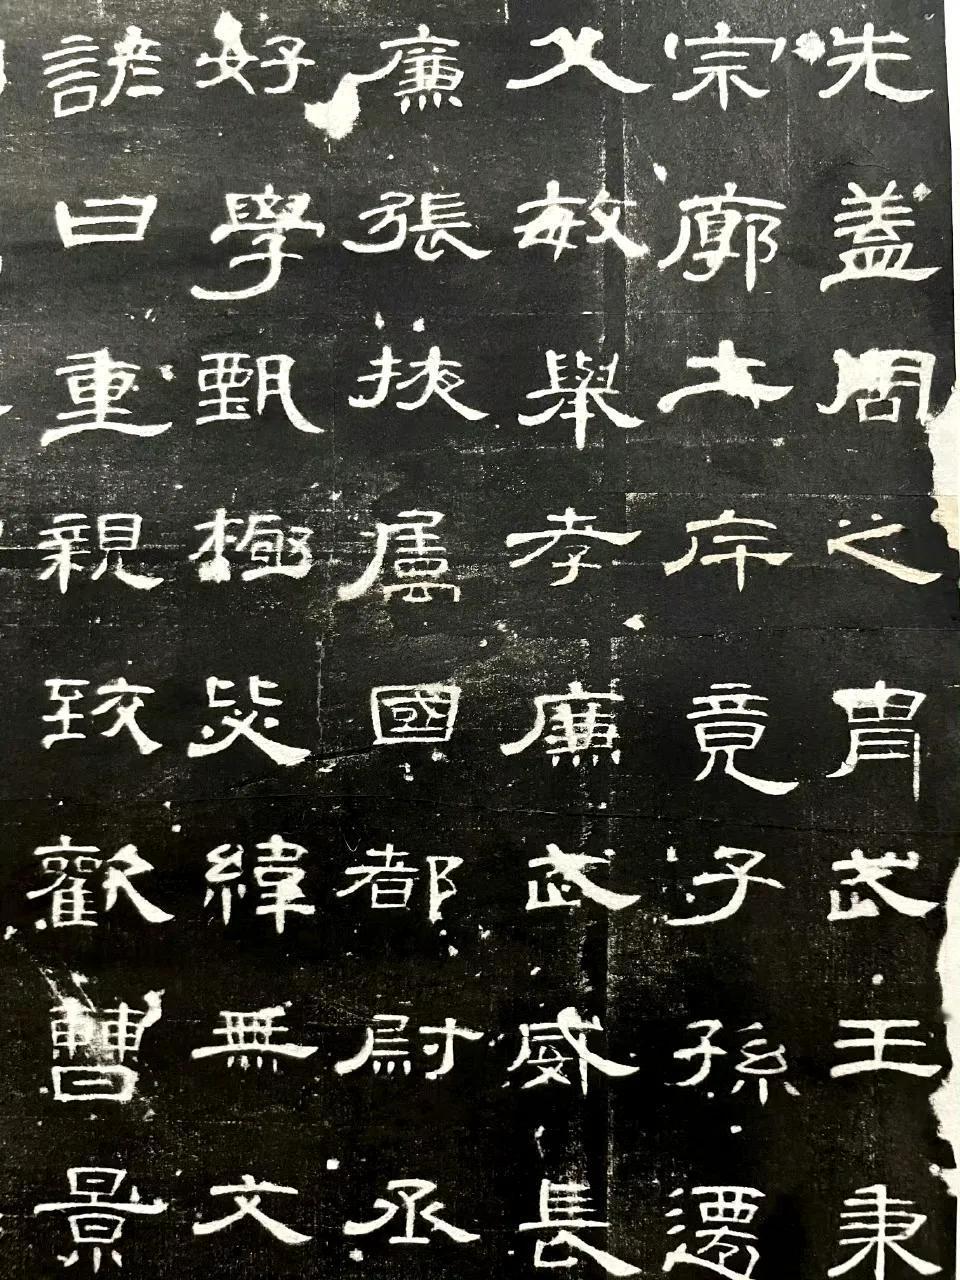 先蓋周之胄武王秉
宗廓土斥竟子孫遷
父敏舉孝廉武威長
廉張掖屬國都尉丞
好學甄極毖緯無文
諺曰重親致歡曹景